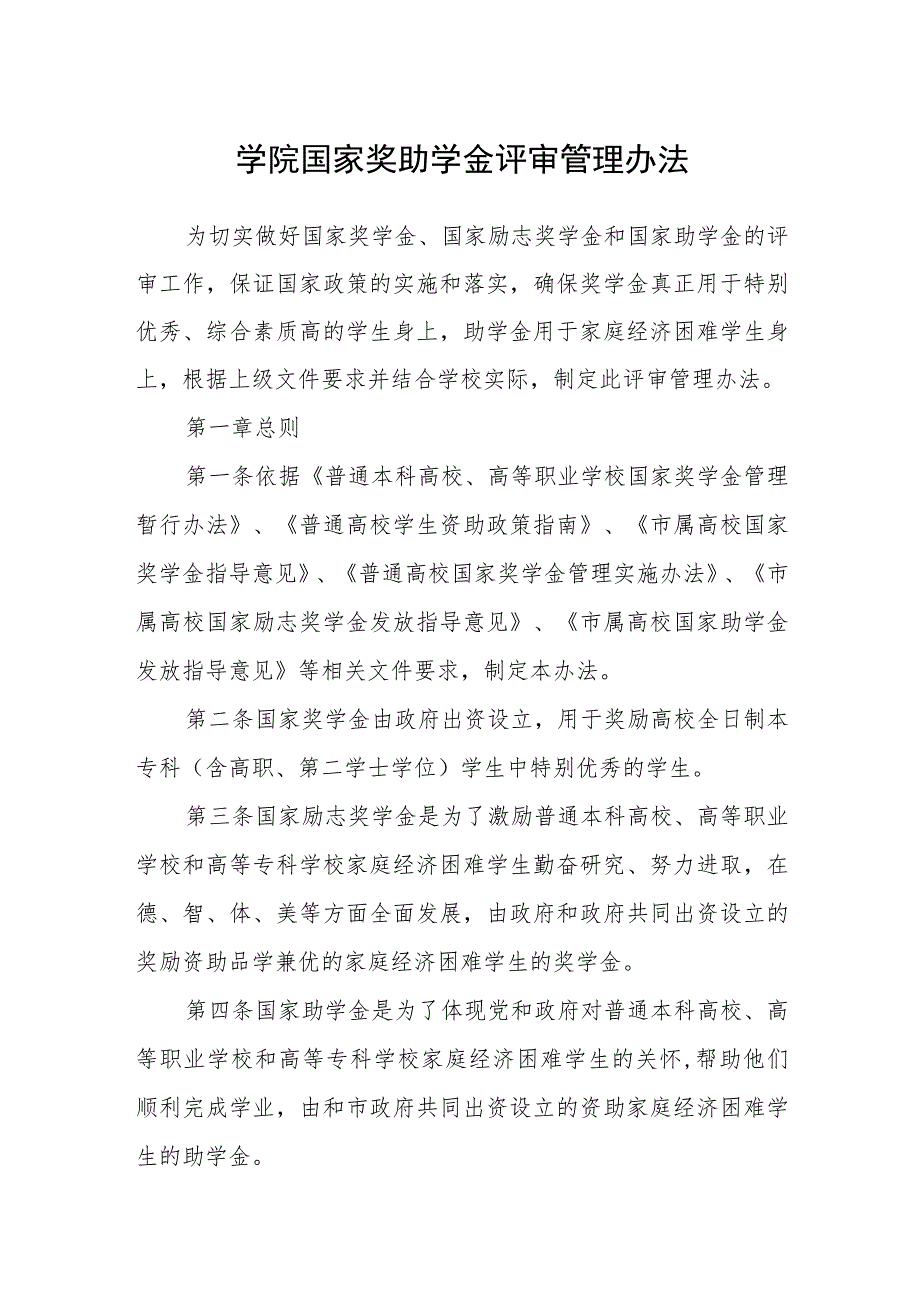 学院国家奖助学金评审管理办法
为切实做好国家奖学金、国家励志奖学金和国家助学金的评
审工作，保证国家政策的实施和落实，确保奖学金真正用于特别
优秀、综合素质高的学生身上，助学金用于家庭经济困难学生身
上，根据上级文件要求并结合学校实际，制定此评审管理办法。
第一章总则
第一条依据《普通本科高校、高等职业学校国家奖学金管理
暂行办法》、《普通高校学生资助政策指南》、《市属高校国家
奖学金指导意见》、《普通高校国家奖学金管理实施办法》、《市
属高校国家励志奖学金发放指导意见》、《市属高校国家助学金
发放指导意见》等相关文件要求，制定本办法。
第二条国家奖学金由政府出资设立，用于奖励高校全日制本
专科（含高职、第二学士学位）学生中特别优秀的学生。
第三条国家励志奖学金是为了激励普通本科高校、高等职业
学校和高等专科学校家庭经济困难学生勤奋研究、努力进取，在
德、智、体、美等方面全面发展，由政府和政府共同出资设立的
奖励资助品学兼优的家庭经济困难学生的奖学金。
第四条国家助学金是为了体现党和政府对普通本科高校、高
等职业学校和高等专科学校家庭经济困难学生的关怀,帮助他们
顺利完成学业，由和市政府共同出资设立的资助家庭经济困难学
生的助学金。